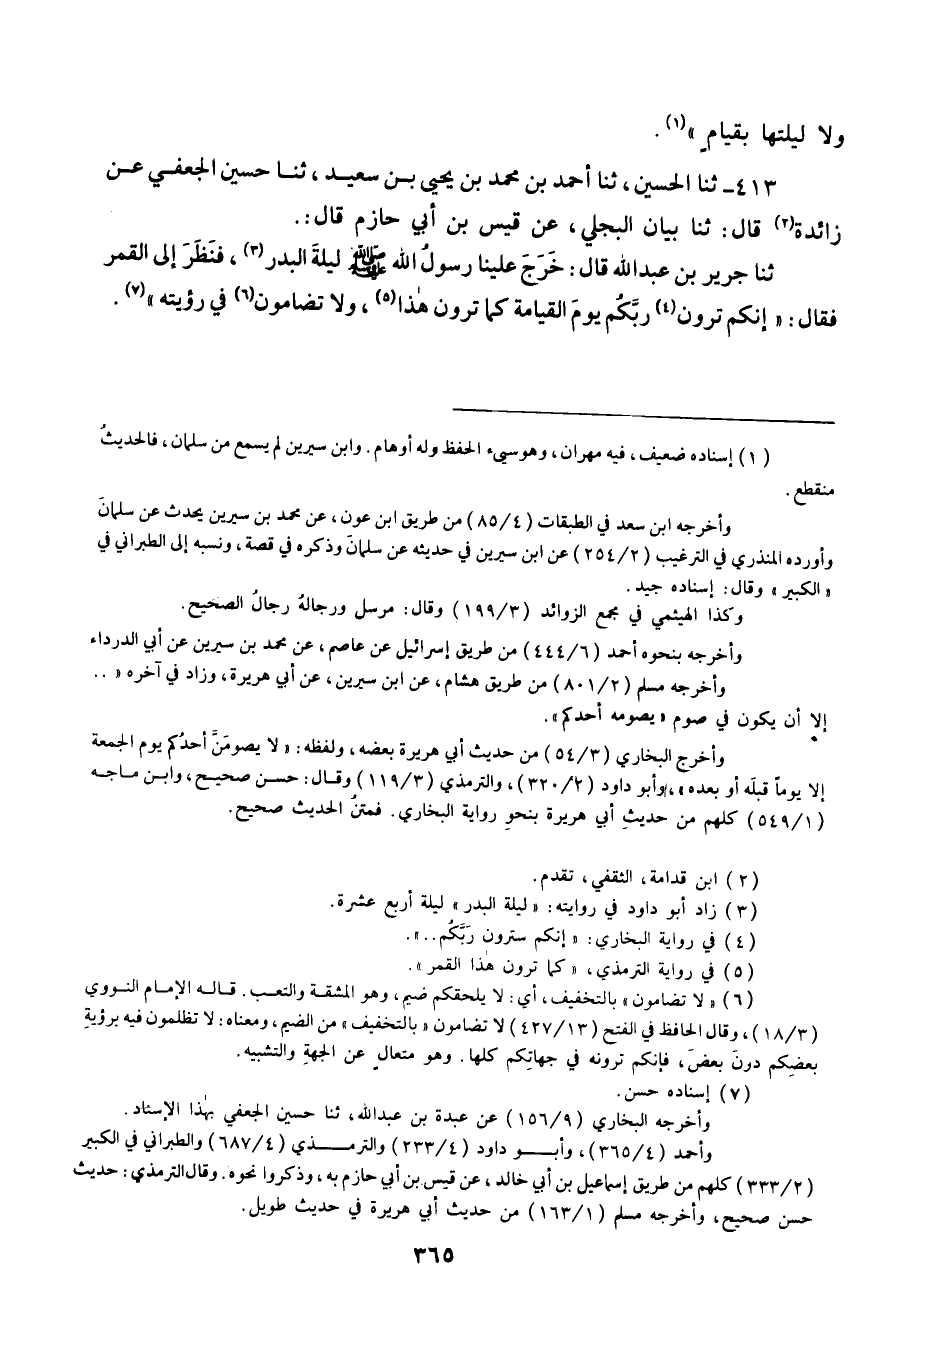 ولا ليلتها بقيامٍ »(١) .
٤١٣ـ ثنا الحسين ، ثنا أحمد بن محمد بن يحيى بـن سعيـد ، ثنـا حسين الجعفـي عـن
زائدة(٢) قال : ثنا بيان البجلي ، عن قيس بن أبي حازم قال :.
ثنا جرير بن عبدالله قال : خَرَجَ علينا رسولُ الله ﷺ ليلةَ البدر(٣) ، فنَظَرَ إلى القمر
فقال : « إنكم ترون(٤) ربَّكُم يومَ القيامة كما ترون هٰذا(٥) ، ولا تضامون(٦) في رؤيته »(٧) .
(١) إسناده ضعيف ، فيه مهران ، وهو سيىء الحفظ وله أوهام . وابن سيرين لم يسمع من سلمان ، فالحديثُ
منقطع .
وأخرجه ابن سعد في الطبقات (٨٥/٤) من طريق ابن عون ، عن محمد بن سيرين يحدث عن سلمانَ
وأورده المنذري في الترغيب (٢٥٤/٢) عن ابن سيرين في حديثه عن سلمانَ وذكره في قصة ، ونسبه إلى الطبراني في
« الكبير » وقال : إسناده جيد .
وكذا الهيثمي في مجمع الزوائد (١٩٩/٣) وقال : مرسل ورجالهُ رجالُ الصحيح .
وأخرجه بنحوه أحمد (٤٤٤/٦) من طريق إسرائيل عن عاصم ، عن محمد بن سيرين عن أبي الدرداء
وأخرجه مسلم (٨٠١/٢) من طريق هشام ، عن ابن سيرين ، عن أبي هريرة ، وزاد في آخره « ..
إلا أن يكون في صوم « يصومه أحدكم » .
وأخرج البخاري (٥٤/٣) من حديث أبي هريرة بعضه ، ولفظه : « لا يصومَنَّ أحدُكم يوم الجمعة
إلا يوماً قبلَه أو بعده » ، وأبو داود (٣٢٠/٢) ، والترمذي (١١٩/٣) وقـال : حسـن صحيـح ، وابـن مـاجـه
(٥٤٩/١) كلهم من حديثِ أبي هريرة بنحوِ رواية البخاري . فمتنُ الحديث صحيح .
(٢) ابن قدامة ، الثقفي ، تقدم .
(٣) زاد أبو داود في روايته : « ليلة البدر » ليلة أربع عشرة .
(٤) في رواية البخاري : « إنكم سترون رَبَّكُم .. » .
(٥) في رواية الترمذي ، « كما ترون هٰذا القمر » .
(٦) « لا تضامون » بالتخفيف ، أي : لا يلحقكم ضيم ، وهو المشقة والتعـب . قـالـه الإمـام النـووي
(١٨/٣) ، وقال الحافظ في الفتح (٤٢٧/١٣) لا تضامون « بالتخفيف » من الضيم ، ومعناه : لا تظلمون فيه برؤيةِ
بعضِكم دونَ بعضَ ، فإنكم ترونه في جهاتِكم كلها . وهو متعالٍ عن الجهةِ والتشبيه .
(٧) إسناده حسن .
وأخرجه البخاري (١٥٦/٩) عن عبدة بن عبدالله ، ثنا حسين الجعفي بهٰذا الإسناد .
وأحمد (٣٦٥/٤) ، وأبـــو داود (٢٣٣/٤) والترمـــذي (٦٨٧/٤) والطبراني في الكبير
(٣٣٣/٢) كلهم من طريق إسماعيل بن أبي خالد ، عن قيس بن أبي حازم به ، وذكروا نحوه . وقال الترمذي : حديث
حسن صحيح ، وأخرجه مسلم (١٦٣/١) من حديث أبي هريرة في حديث طويل .
٣٦٥